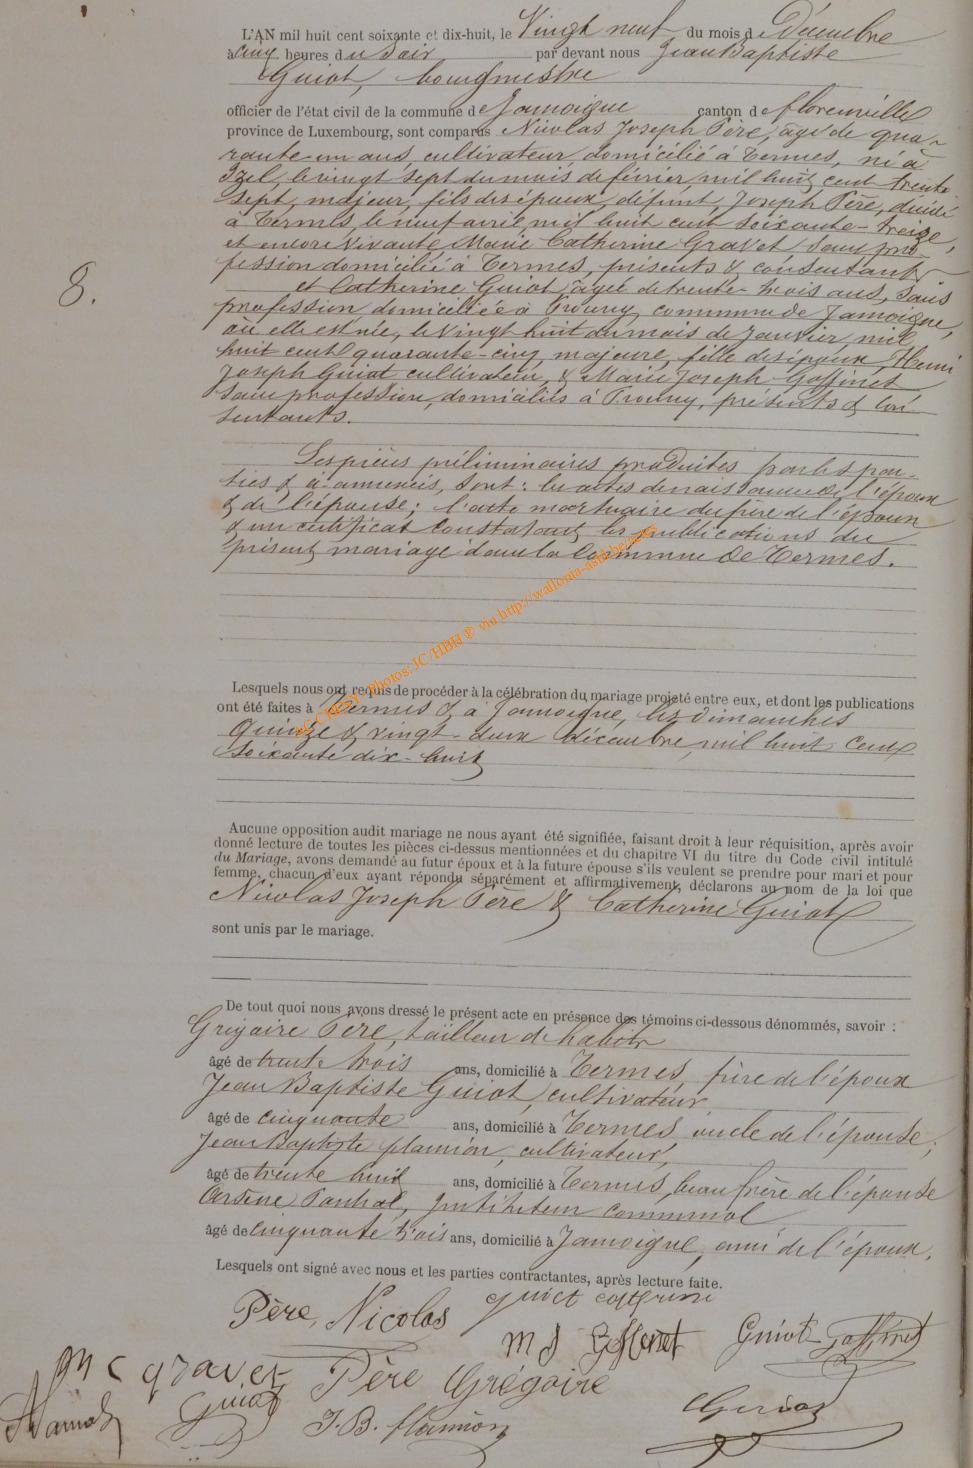 L'AN mil huit cent soixante et dix-huit, le Vingt neuf du mois de Décembre
à cinq heures du soir par devant nous Jean Baptiste
Guiot, bourgmestre
officier de l'état civil de la commune de Jamoigne canton de florenville
province de Luxembourg, sont comparus Nicolas Joseph Père, âgé de qua-
rante un ans, cultivateur, domicilié à Termes, né à
Izel, le vingt sept du mois de février, mil huit cent trente
sept, majeur, fils des époux, défunt, Joseph Père, décédé
à Termes, le neuf avril, mil huit cent soixante-treize,
et encore vivante, Marie Catherine Gravet, sans pro-
fession domiciliée à Termes, présents & consentants
8.
et Catherine Guiot, âgée de trente-trois ans, sans
profession, domiciliée à Prouvy, commune de Jamoigne,
où elle est née, le Vingt huit du mois de Janvier, mil
huit cent quarante-cinq, majeure, fille des époux, Henri
Joseph Guiot cultivateur, & Marie Joseph Goffinet
sans profession, domiciliés à Prouvy, présents & con-
sentants.
Les pièces préliminaires produites par les par-
ties & ci-annexées, sont: les actes de naissance de l'époux
& de l'épouse; l'acte mortuaire du père de l'époux
& un certificat constatant les publications du
présent mariage dans la Commune de Termes.
Photos: JC-HBH ® via http://wallonia-asbl.be
Lesquels nous ont requis de procéder à la célébration du mariage projeté entre eux, et dont les publications
ont été faites à Termes & à Jamoigne, les dimanches
Quinze & vingt-deux décembre, mil huit cent
soixante dix-huit
Aucune opposition audit mariage ne nous ayant été signifiée, faisant droit à leur réquisition, après avoir
donné lecture de toutes les pièces ci-dessus mentionnées et du chapitre VI du titre du Code civil intitulé
du Mariage, avons demandé au futur époux et à la future épouse s'ils veulent se prendre pour mari et pour
femme, chacun d'eux ayant répondu séparément et affirmativement, déclarons au nom de la loi que
Nicolas Joseph Père & Catherine Guiot
sont unis par le mariage.
De tout quoi nous avons dressé le présent acte en présence des témoins ci-dessous dénommés, savoir :
Grégoire Père, tailleur d'habits
âgé de trente trois ans, domicilié à Termes, frère de l'époux
Jean Baptiste Guiot, cultivateur
âgé de cinquante ans, domicilié à Termes, oncle de l'épouse,
Jean Baptiste flamion, cultivateur,
âgé de trente huit ans, domicilié à Termes, beau frère de l'épouse
Arsène, instituteur communal
âgé de cinquante trois ans, domicilié à Jamoigne, ami de l'époux.
Lesquels ont signé avec nous et les parties contractantes, après lecture faite.
Père, Nicolas guiot catherine
M J Goffinet Guiot Goffinet
M C gravet Père Grégoire
Guiot J.B. flamion Guiot